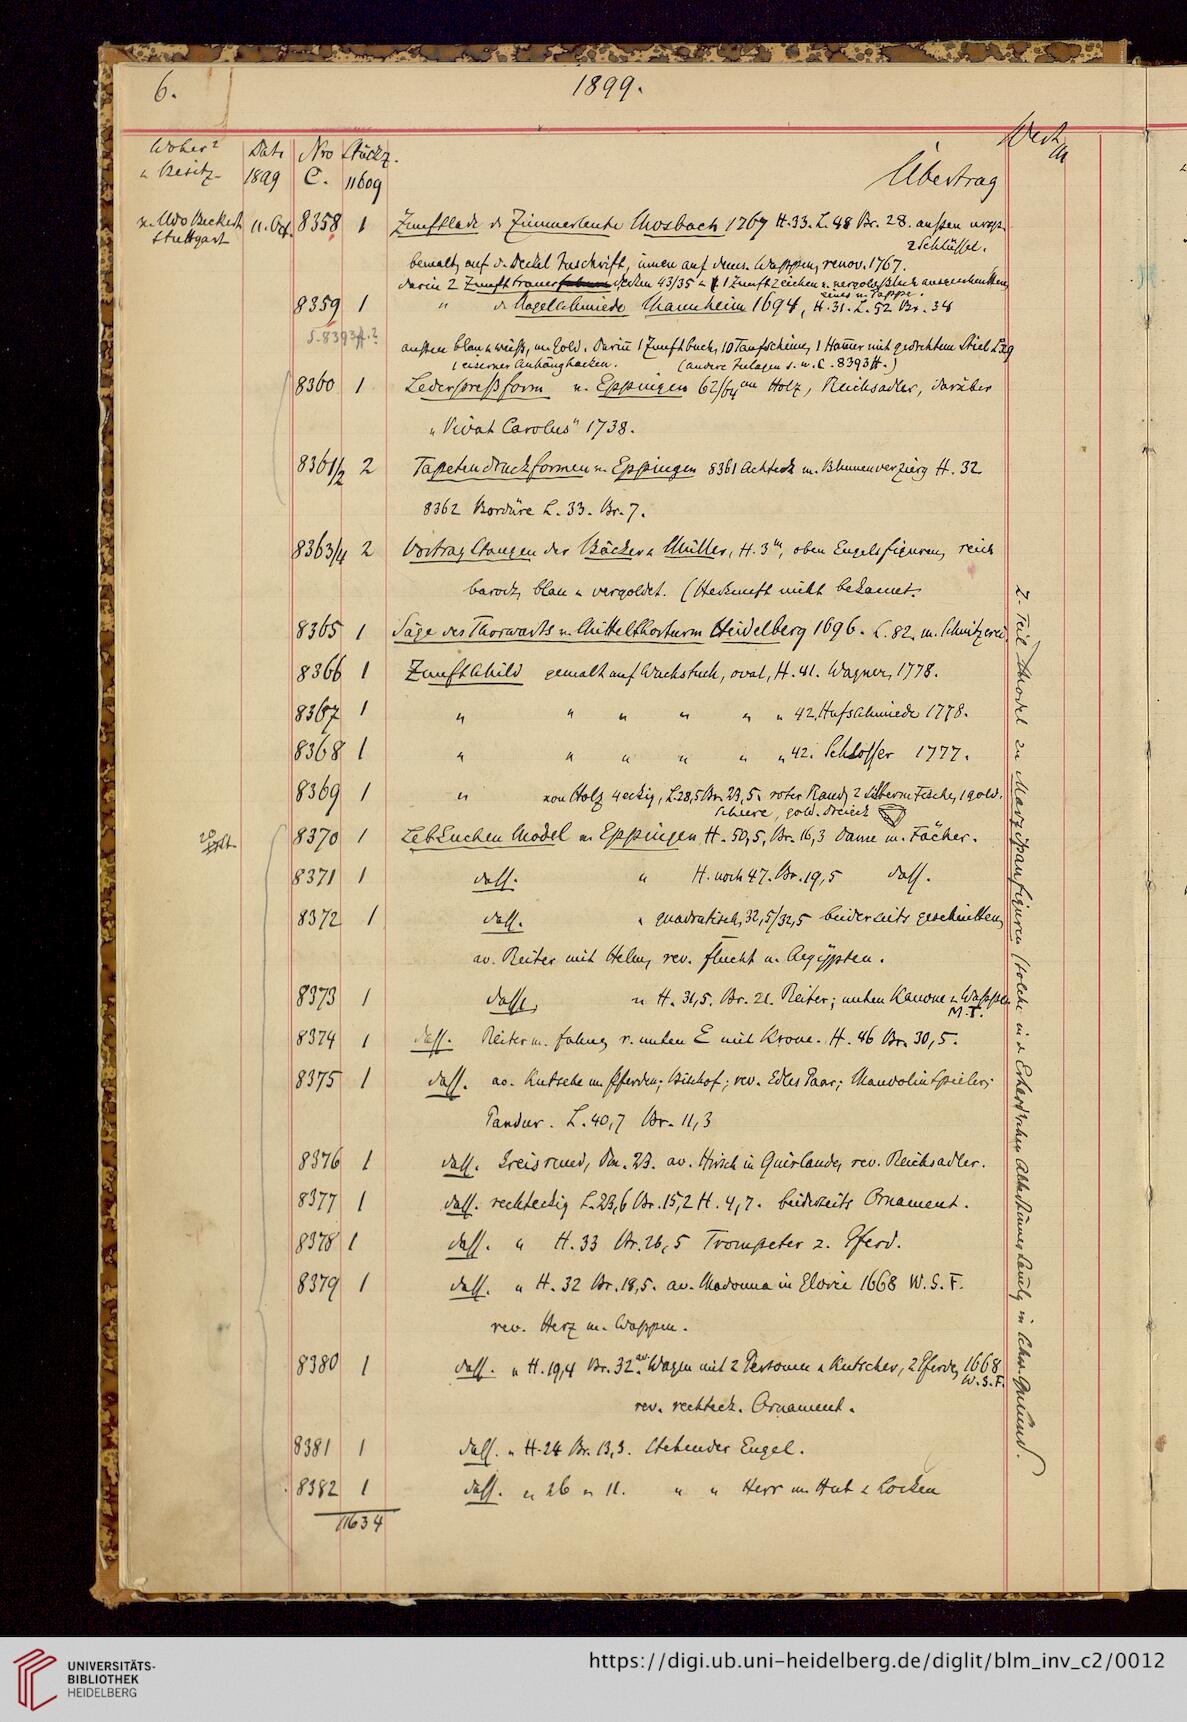 6.
1899.
Woher?
u. Besitz.
Date
1899
Nro
C.
Stückz.
11609
Übertrag
Wert
M
v. Udo Beckert
Stuttgart
11. Oct.
8358 1 Zunftlade d. Zimmerleute Mosbach 1767 H. 33. L. 48 Br. 28. aussen
2 Schlüssel.
bemalt, auf d. Deckel Inschrift, innen auf dems. Wappen, renov. 1767.
darin 2 Zunfttrauer 43/35 u. 1 Zunftzeichen a. vergold. Blech ausgeschnitten
8359 1 " d. Nagelschmiede Mannheim 1694, H. 31. L. 52 Br. 34
S. 8393ff.?
aussen blau u. weiß, m. Gold. Darin 1 Zunftbuch, 10 Taufscheine, 1 Hammer mit gedrehtem Stiel L. 29
1 eiserner Anhänghacken. (andere Zulagen s. u. C. 8393 ff.)
8360 1 Lederpreßform v. Eppingen 62/64 cm Holz, Reichsadler, darüber
„Vivat Carolus" 1738.
8361/2 2 Tapetendruckformen v. Eppingen 8361 Achteck m. Blumenverzierg H. 32
8362 Bordüre L. 33. Br. 7.
8363/4 2 Vortragstangen der Bäcker u. Müller, H. 3 m, oben Engelsfiguren, reich
barock, blau u. vergoldet. (Herkunft nicht bekannt.
8365 1 Säge des Thorwarts v. Mittelthorturm Heidelberg 1696. L. 82. m. Schnitzerei
8366 1 Zunftschild gemalt auf Wachstuch, oval, H. 41. Wagner, 1778.
8367 1 " " " " " " 42. Hufschmiede 1778.
8368 1 " " " " " " 42. Schlosser 1777.
8369 1 " von Holz 4eckig, L. 28,5 Br. 23,5. roter Rand, 2 silberne Fische, 1 gold.
Scheere, gold. Dreieck
8370 1 Lebkuchen Model v. Eppingen H. 50,5. Br. 16,3 Dame m. Fächer.
8371 1 dass. " H. noch 47. Br. 19,5 dass.
8372 1 dass. " quadratisch, 32,5/32,5 beiderseits geschnitten,
av. Reiter mit Helm, rev. Flucht n. Aegÿpten.
8373 1 dass. " H. 31,5. Br. 21. Reiter; unten Kanone u. Wappen
M. T.
8374 1 dass. Reiter m. Fahne, r. unten E mit Krone. H. 46 Br. 30,5.
8375 1 dass. av. Kutsche m. Pferden; Bischof; rev. Edles Paar; Mandolinspieler;
Pandur. L. 40,7 Br. 11,3
8376 1 dass. Kreisrund, Dm. 23. av. Hirsch in Guirlande, rev. Reichsadler.
8377 1 dass. rechteckig L. 23,6 Br. 15,2 H. 4,7. beiderseits Ornament.
8378 1 dass. " H. 33 Br. 26,5 Trompeter z. Pferd.
8379 1 dass. " H. 32 Br. 18,5. av. Madonna in Glorie 1668 W. S. F.
rev. Herz m. Wappen.
8380 1 dass. " H. 19,4 Br. 32. av. Wagen mit 2 Personen u. Kutscher, 2 Pferde, 1668
W. S. F.
rev. rechteck. Ornament.
8381 1 dass. " H. 24 Br. 13,3. Stehender Engel.
8382 1 dass. " 26 " 11. " " Herr m. Hut u. Locken
11634
z. Teil Model zu Marzipanfiguren (solche in d. Erhard'schen Altertümersamlg in Schw. Gmünd.)
UNIVERSITÄTS-
BIBLIOTHEK
HEIDELBERG
https://digi.ub.uni-heidelberg.de/diglit/blm_inv_c2/0012